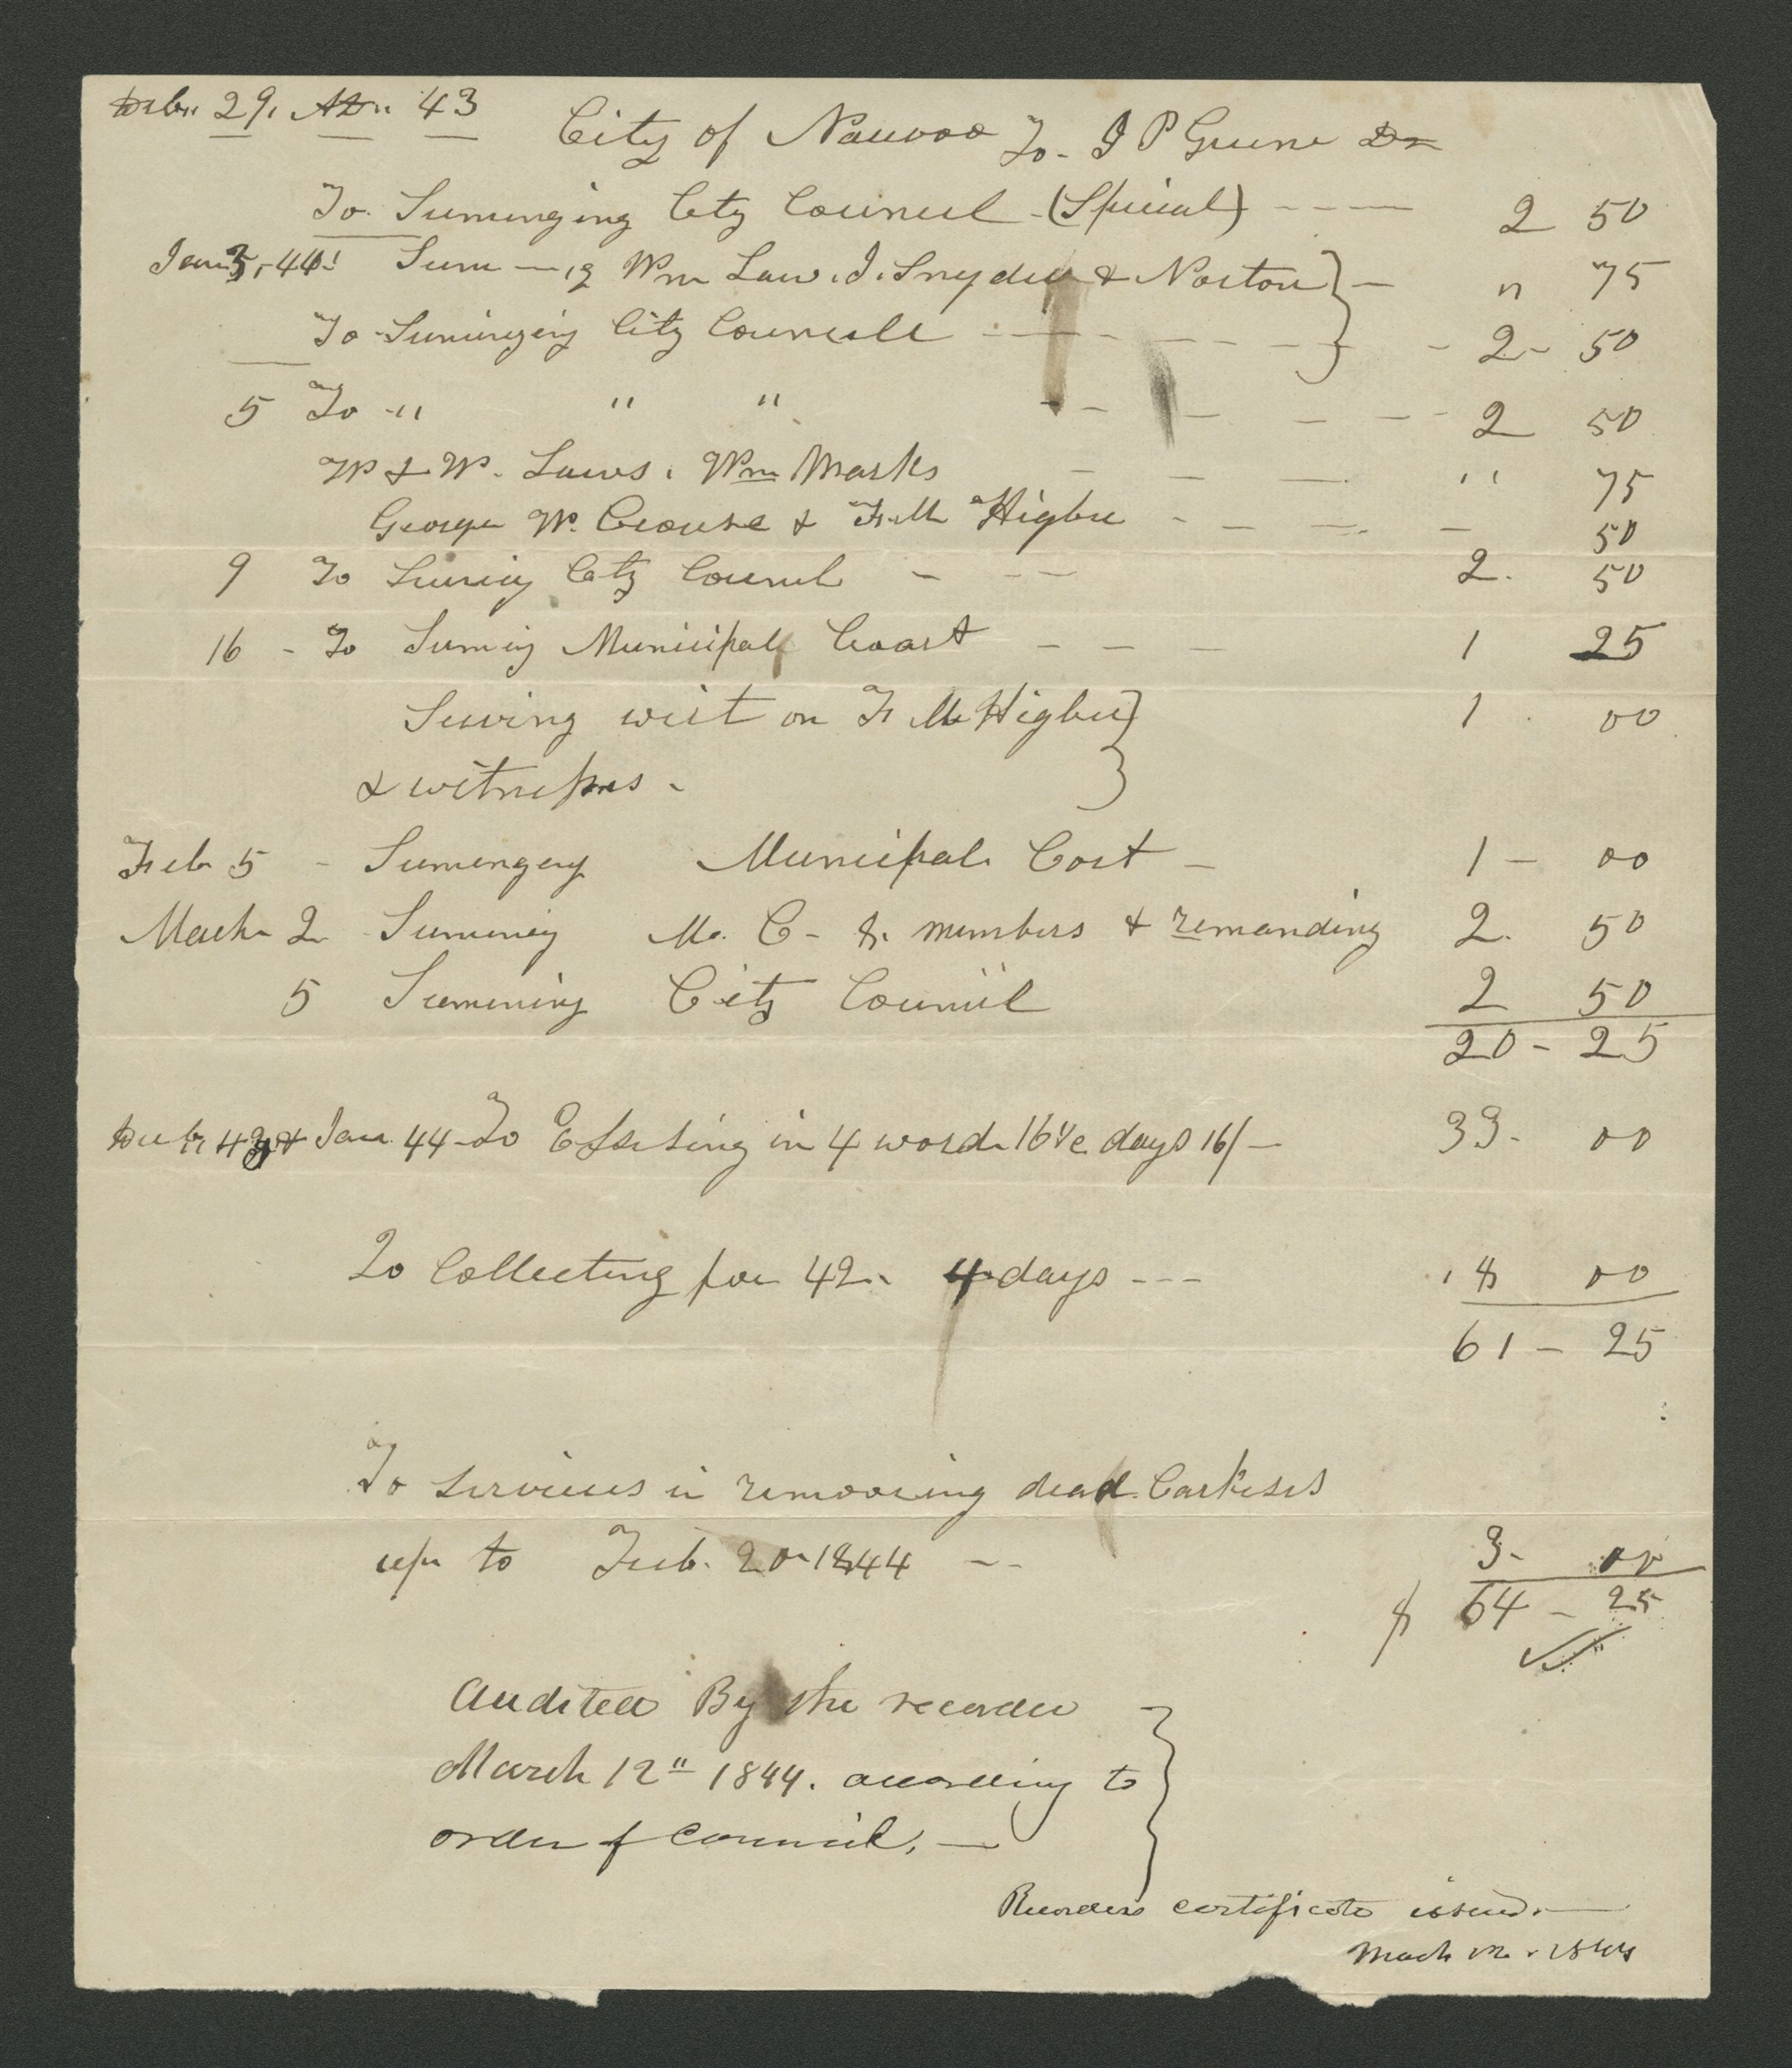 Decbr. 29, AD. 43
City of Nauvoo To. J P Greene Dr
To. Sumunging City Council (Speicial) - - - 2 50
Jan 3, 44! Sum — ig Wm Law. J. Snyder & Norton } — " 75
To Sumunging City Councill - - - - 2 - 50
5 To " " " - - - - 2 50
W & W. Laws. Wm Marks - - - " 75
George W. Crouse & F. M Higbee - - - - 50
9 To Suming City Council - - - 2. 50
16 - To Suming Municipall Coart - - - 1 25
Serving writ on F M Higbee } 1 00
& witnesses -
Feb 5 - Sumenging Municipal Cort - 1 - 00
March 2 Suming M. C - 8 members & remanding 2. 50
5 Sumining City Council 2 50
20 - 25
Decbr. 43 & Jan. 44 - To Essesing in 4 word 16½ days 16/ — 33 - 00
To Collecting for 42. 4 days - - - 8 00
61 - 25
To Services in remooving dead Carkeses
up to Feb. 20 1844 - - 3 - 00
$ 64 - 25
Audited By the recorder
March 12" 1844. according to
order of Council, —
Recorders certificate issued. —
March 12. 1844